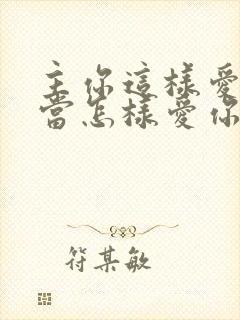 主你這樣愛
當怎樣愛你
符某敏